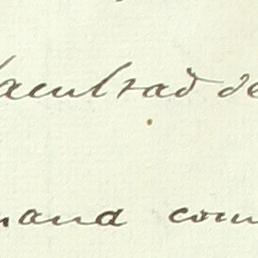 facultad de
mana com